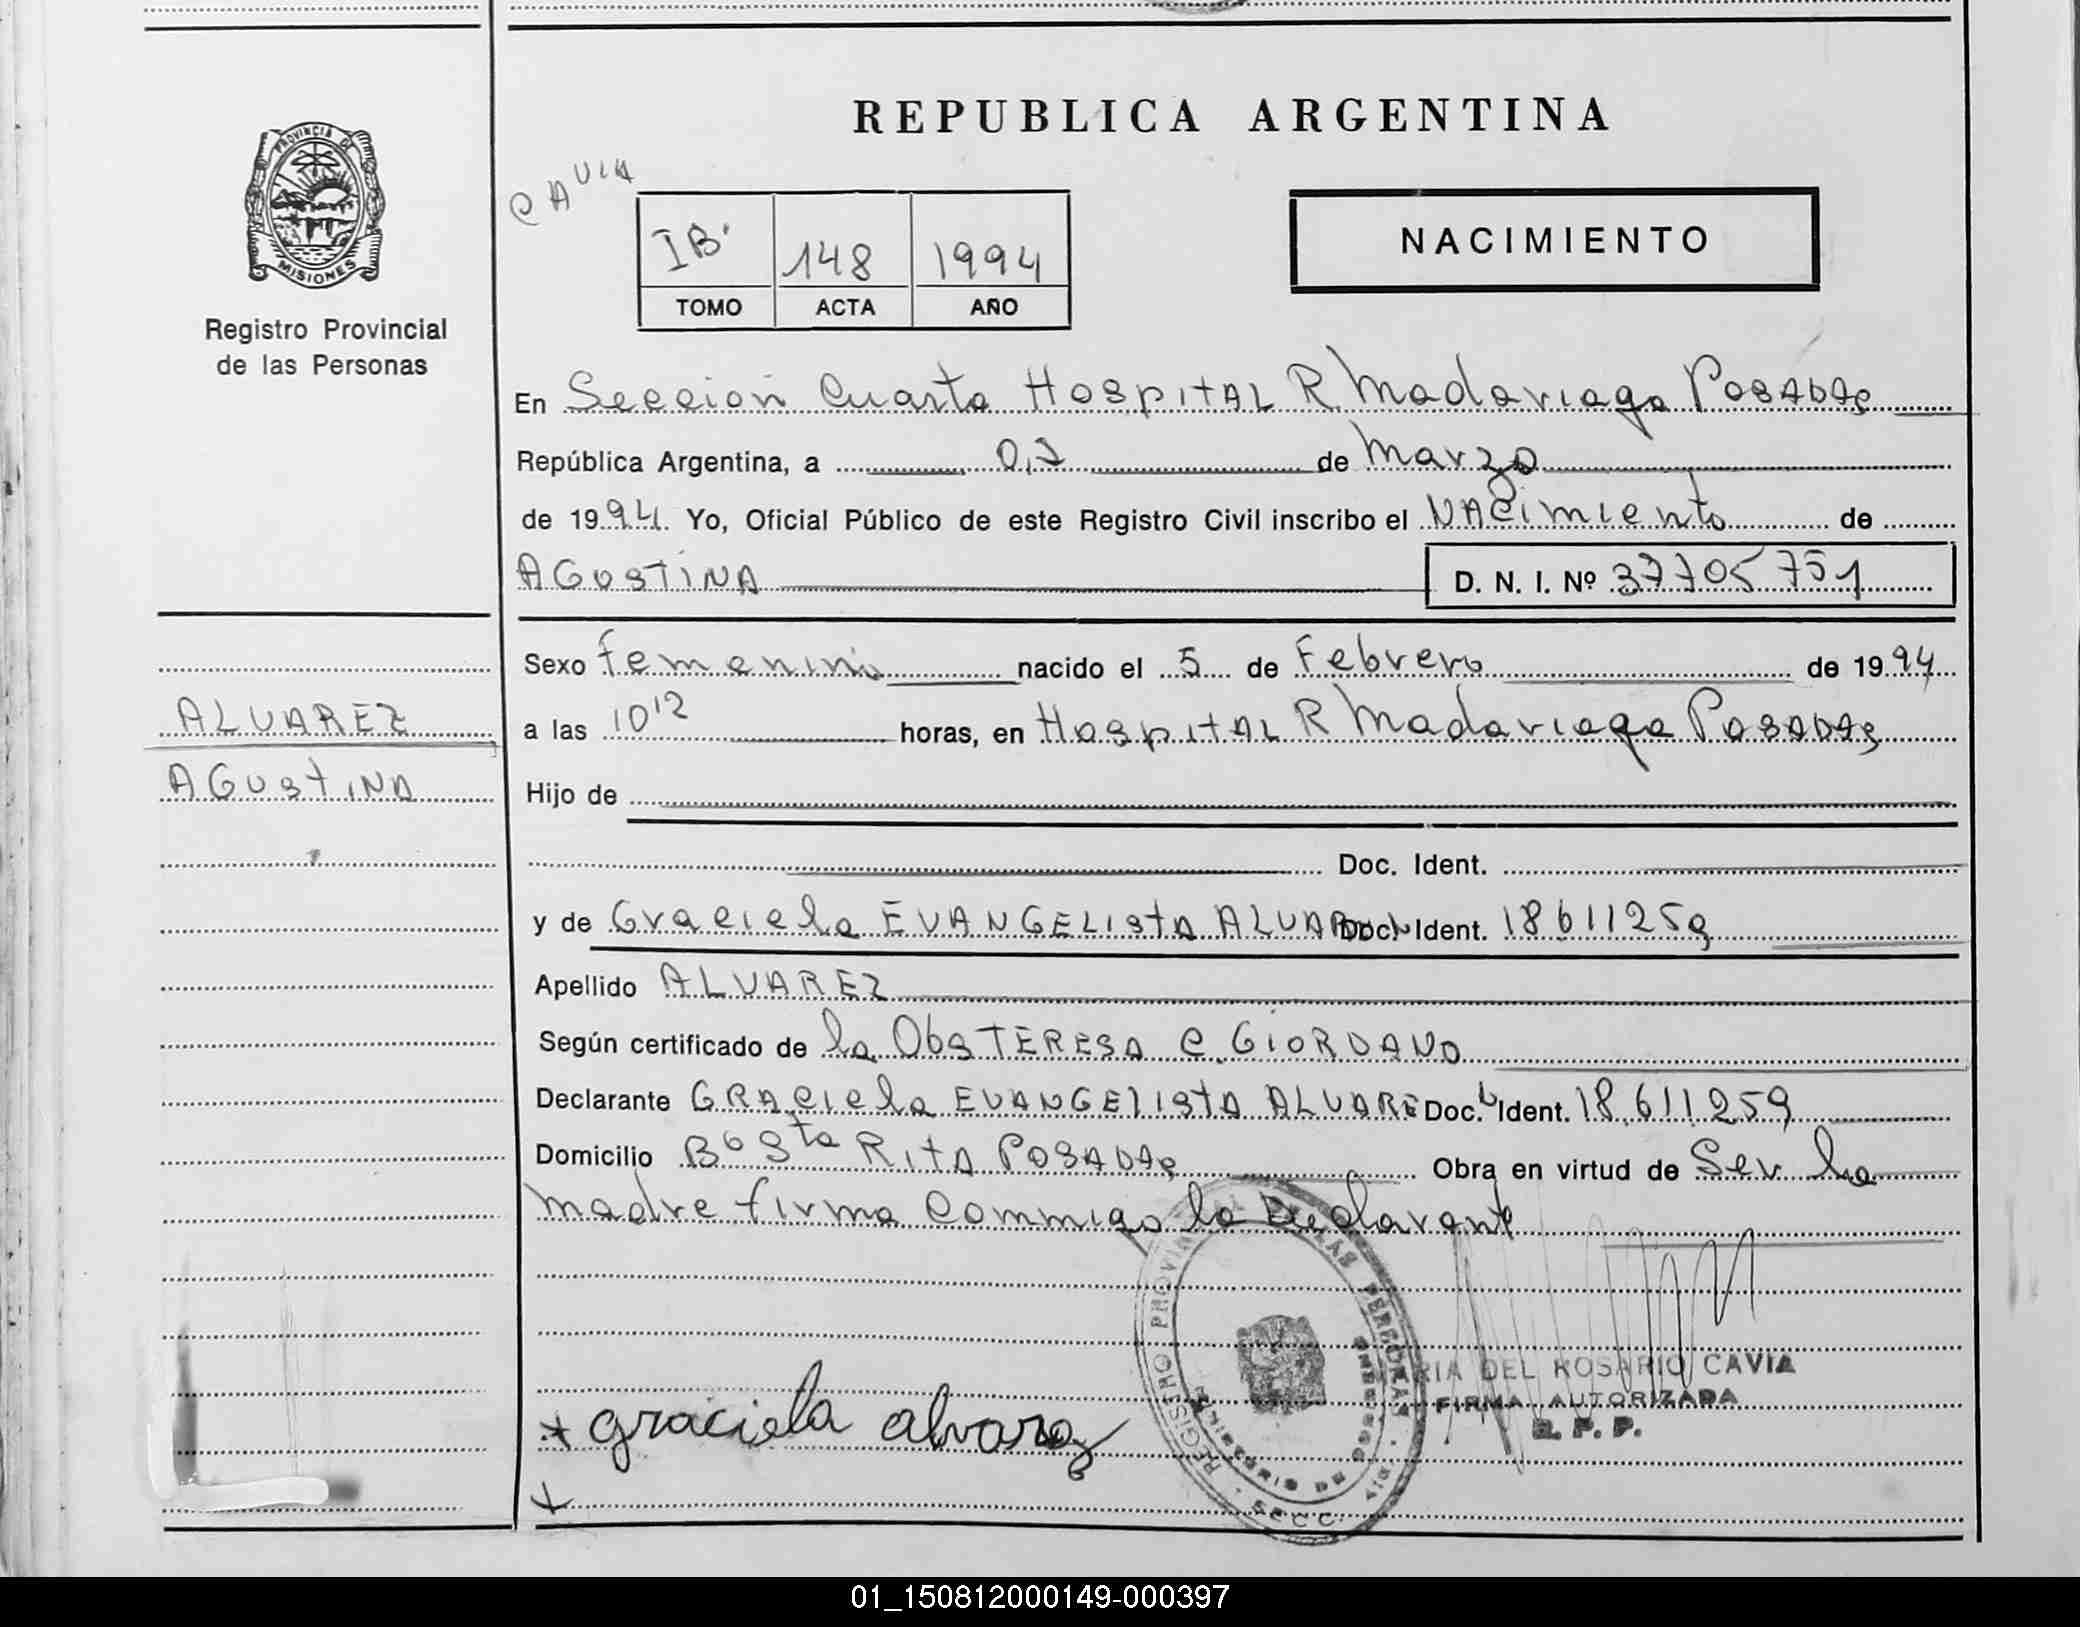 REPUBLICA ARGENTINA
PROVINCIA DE
MISIONES
Registro Provincial
de las Personas
CAVIA
IBˈ 148 1994
TOMO ACTA AÑO
NACIMIENTO
En Seccion Cuarta HOSPITAL R Madariaga POSADAS
República Argentina, a 07 de Marzo
de 1994 Yo, Oficial Público de este Registro Civil inscribo el NACimiento de
AGUSTINA D. N. I. Nº 37705751
Sexo femenino nacido el 5 de Febrero de 1994
a las 10¹² horas, en HOSPITAL R Madariaga POSADAS
ALVAREZ
AGUSTINA
Hijo de
Doc. Ident.
y de Graciela EVANGELISTA ALVAR Doc. Ident. 18611259
Apellido ALVAREZ
Según certificado de la Obs TERESA C. GIORDANO
Declarante GRACIELA EVANGELISTA ALVAREZ Doc. Ident. 18.611.259
Domicilio Bº Sta RITA POSADAS Obra en virtud de Ser la
madre firma Commigo la Declarante
graciela alvarez
REGISTRO PROVINCIAL DE LAS PERSONAS
MINISTERIO DE GOBIERNO
SECC. 4ta
RIA DEL ROSARIO CAVIA
FIRMA AUTORIZADA
R. P. P.
01_150812000149-000397